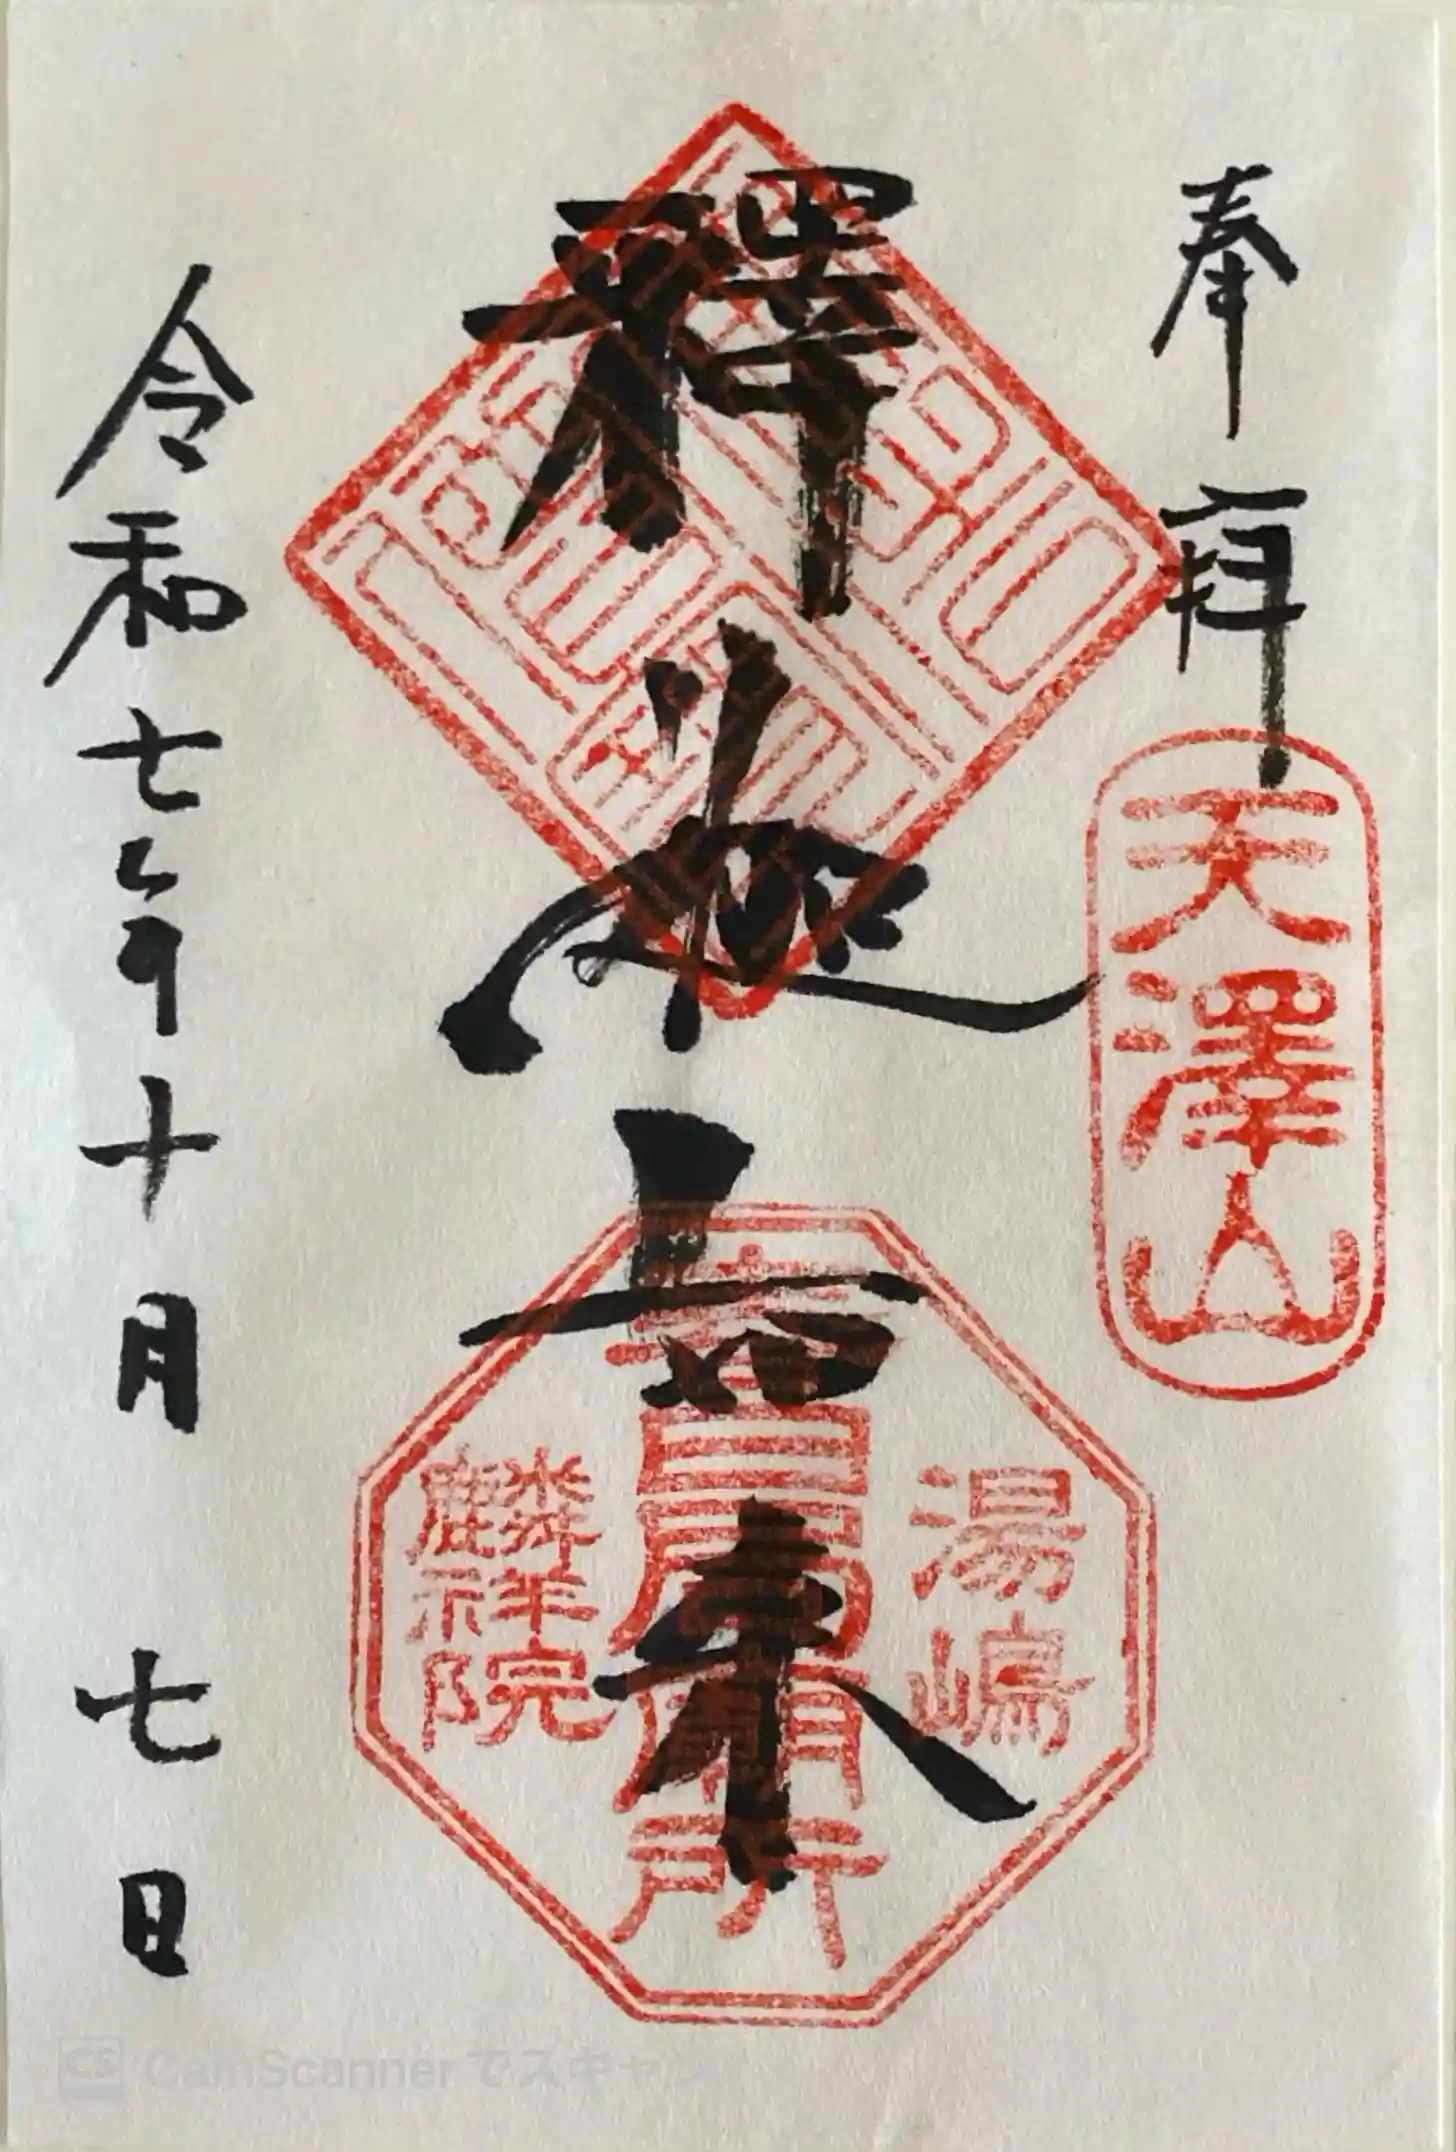 奉拜
天澤山
釋迦如来
湯嶋
春日局廟所
麟祥院
令和七年十月七日
CS CamScannerでスキャン